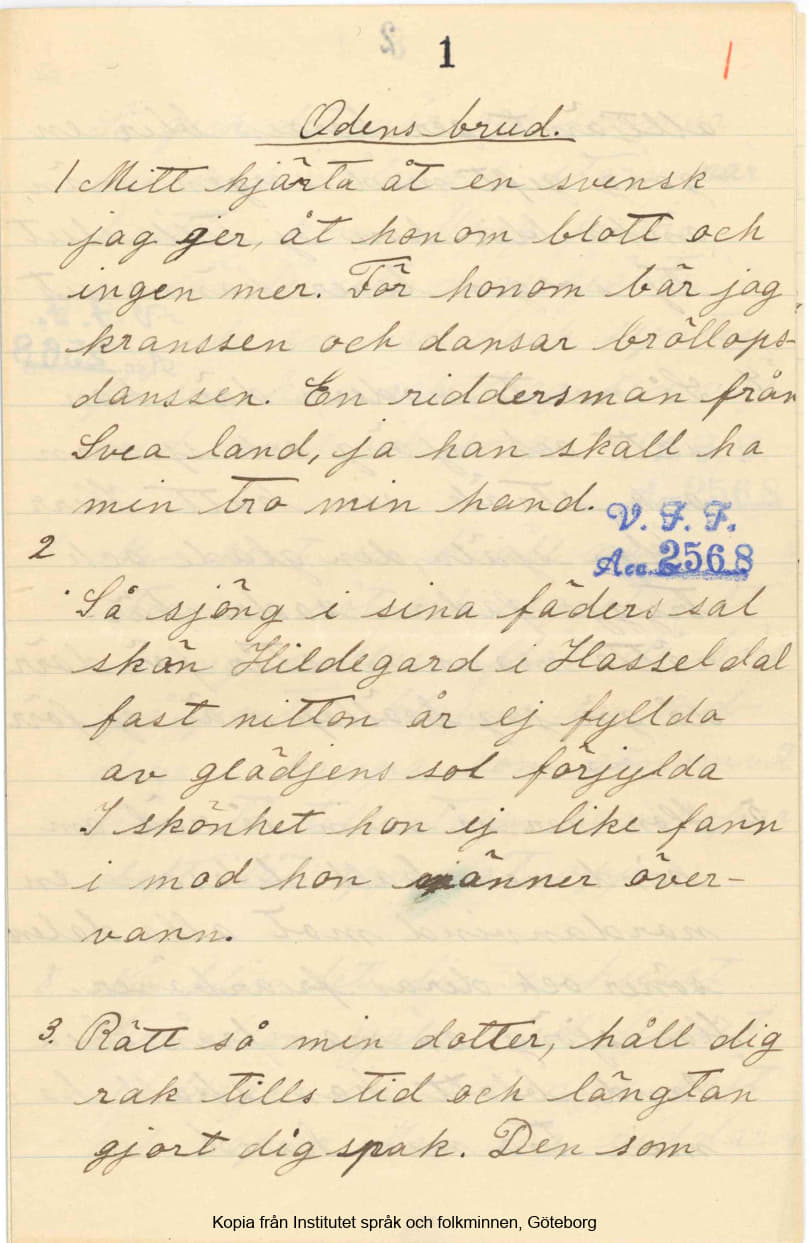 1
1
Odens brud.
1 Mitt hjärta åt en svensk
jag ger, åt honom blott och
ingen mer. För honom bär jag
kranssen och dansar bröllops-
danssen. En riddersman från
Svea land, ja han skall ha
min tro min hand.
V. F. F.
Acc. 2568
2
Så sjöng i sina fäders sal
skön Hildegard i Hasseldal
fast nitton år ej fyllda
av glädjens sol förjylda
I skönhet hon ej like fann
i mod hon männer över-
vann.
3. Rätt så min dotter, håll dig
rak tills tid och längtan
gjort dig spak. Den som
Kopia från Institutet språk och folkminnen, Göteborg